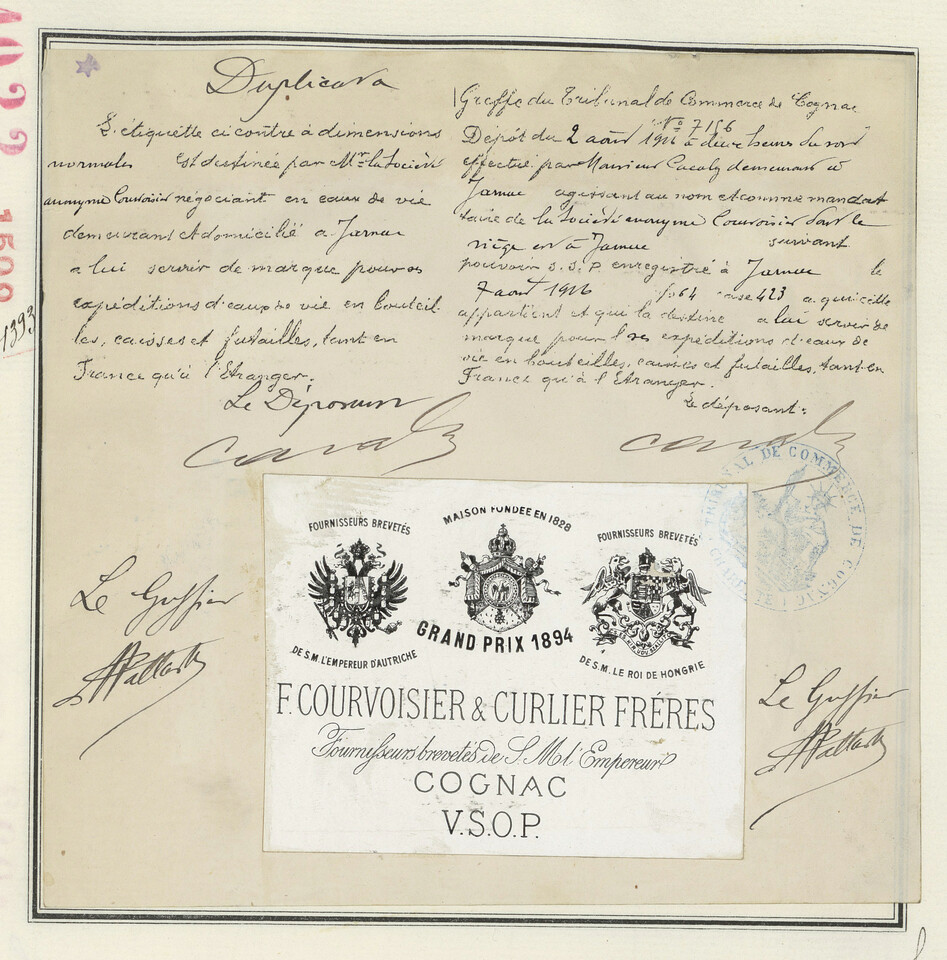 Duplicata
L'étiquette ci contre à dimensions
normales est destinée par Mr la Société
anonyme Courvoisier négociant en eaux de vie
demeurant et domicilié à Jarnac
à lui servir de marque pour ses
expéditions d'eaux de vie en bouteil-
les, caisses et futailles, tant en
France qu'à l'Etranger.
Le Déposant
Greffe du Tribunal de Commerce de Cognac
No 7156
Dépôt du 2 août à deux heures du soir
effectué par Monsieur demeurant à
Jarnac agissant au nom et comme mandat
taire de la Société anonyme Courvoisier dont le
siège est à Jarnac suivant
pouvoir S.S.P. enregistré à Jarnac le
7 août 1926 fo 64 case 423 a qui elle
appartient et qui la destine a lui servir de
marque pour ses expéditions d'eaux de
vie en bouteilles, caisses et futailles, tant en
France qu'à l'Etranger.
Le déposant:
TRIBUNAL DE COMMERCE DE COGNAC
Le Greffier
Le Greffier
1393
FOURNISSEURS BREVETÉS
DE S.M. L'EMPEREUR D'AUTRICHE
MAISON FONDÉE EN 1828
GRAND PRIX 1894
FOURNISSEURS BREVETÉS
DE S.M. LE ROI DE HONGRIE
F. COURVOISIER & CURLIER FRÉRES
Fournisseurs brevetés de S. M. l'Empereur
COGNAC
V.S.O.P.